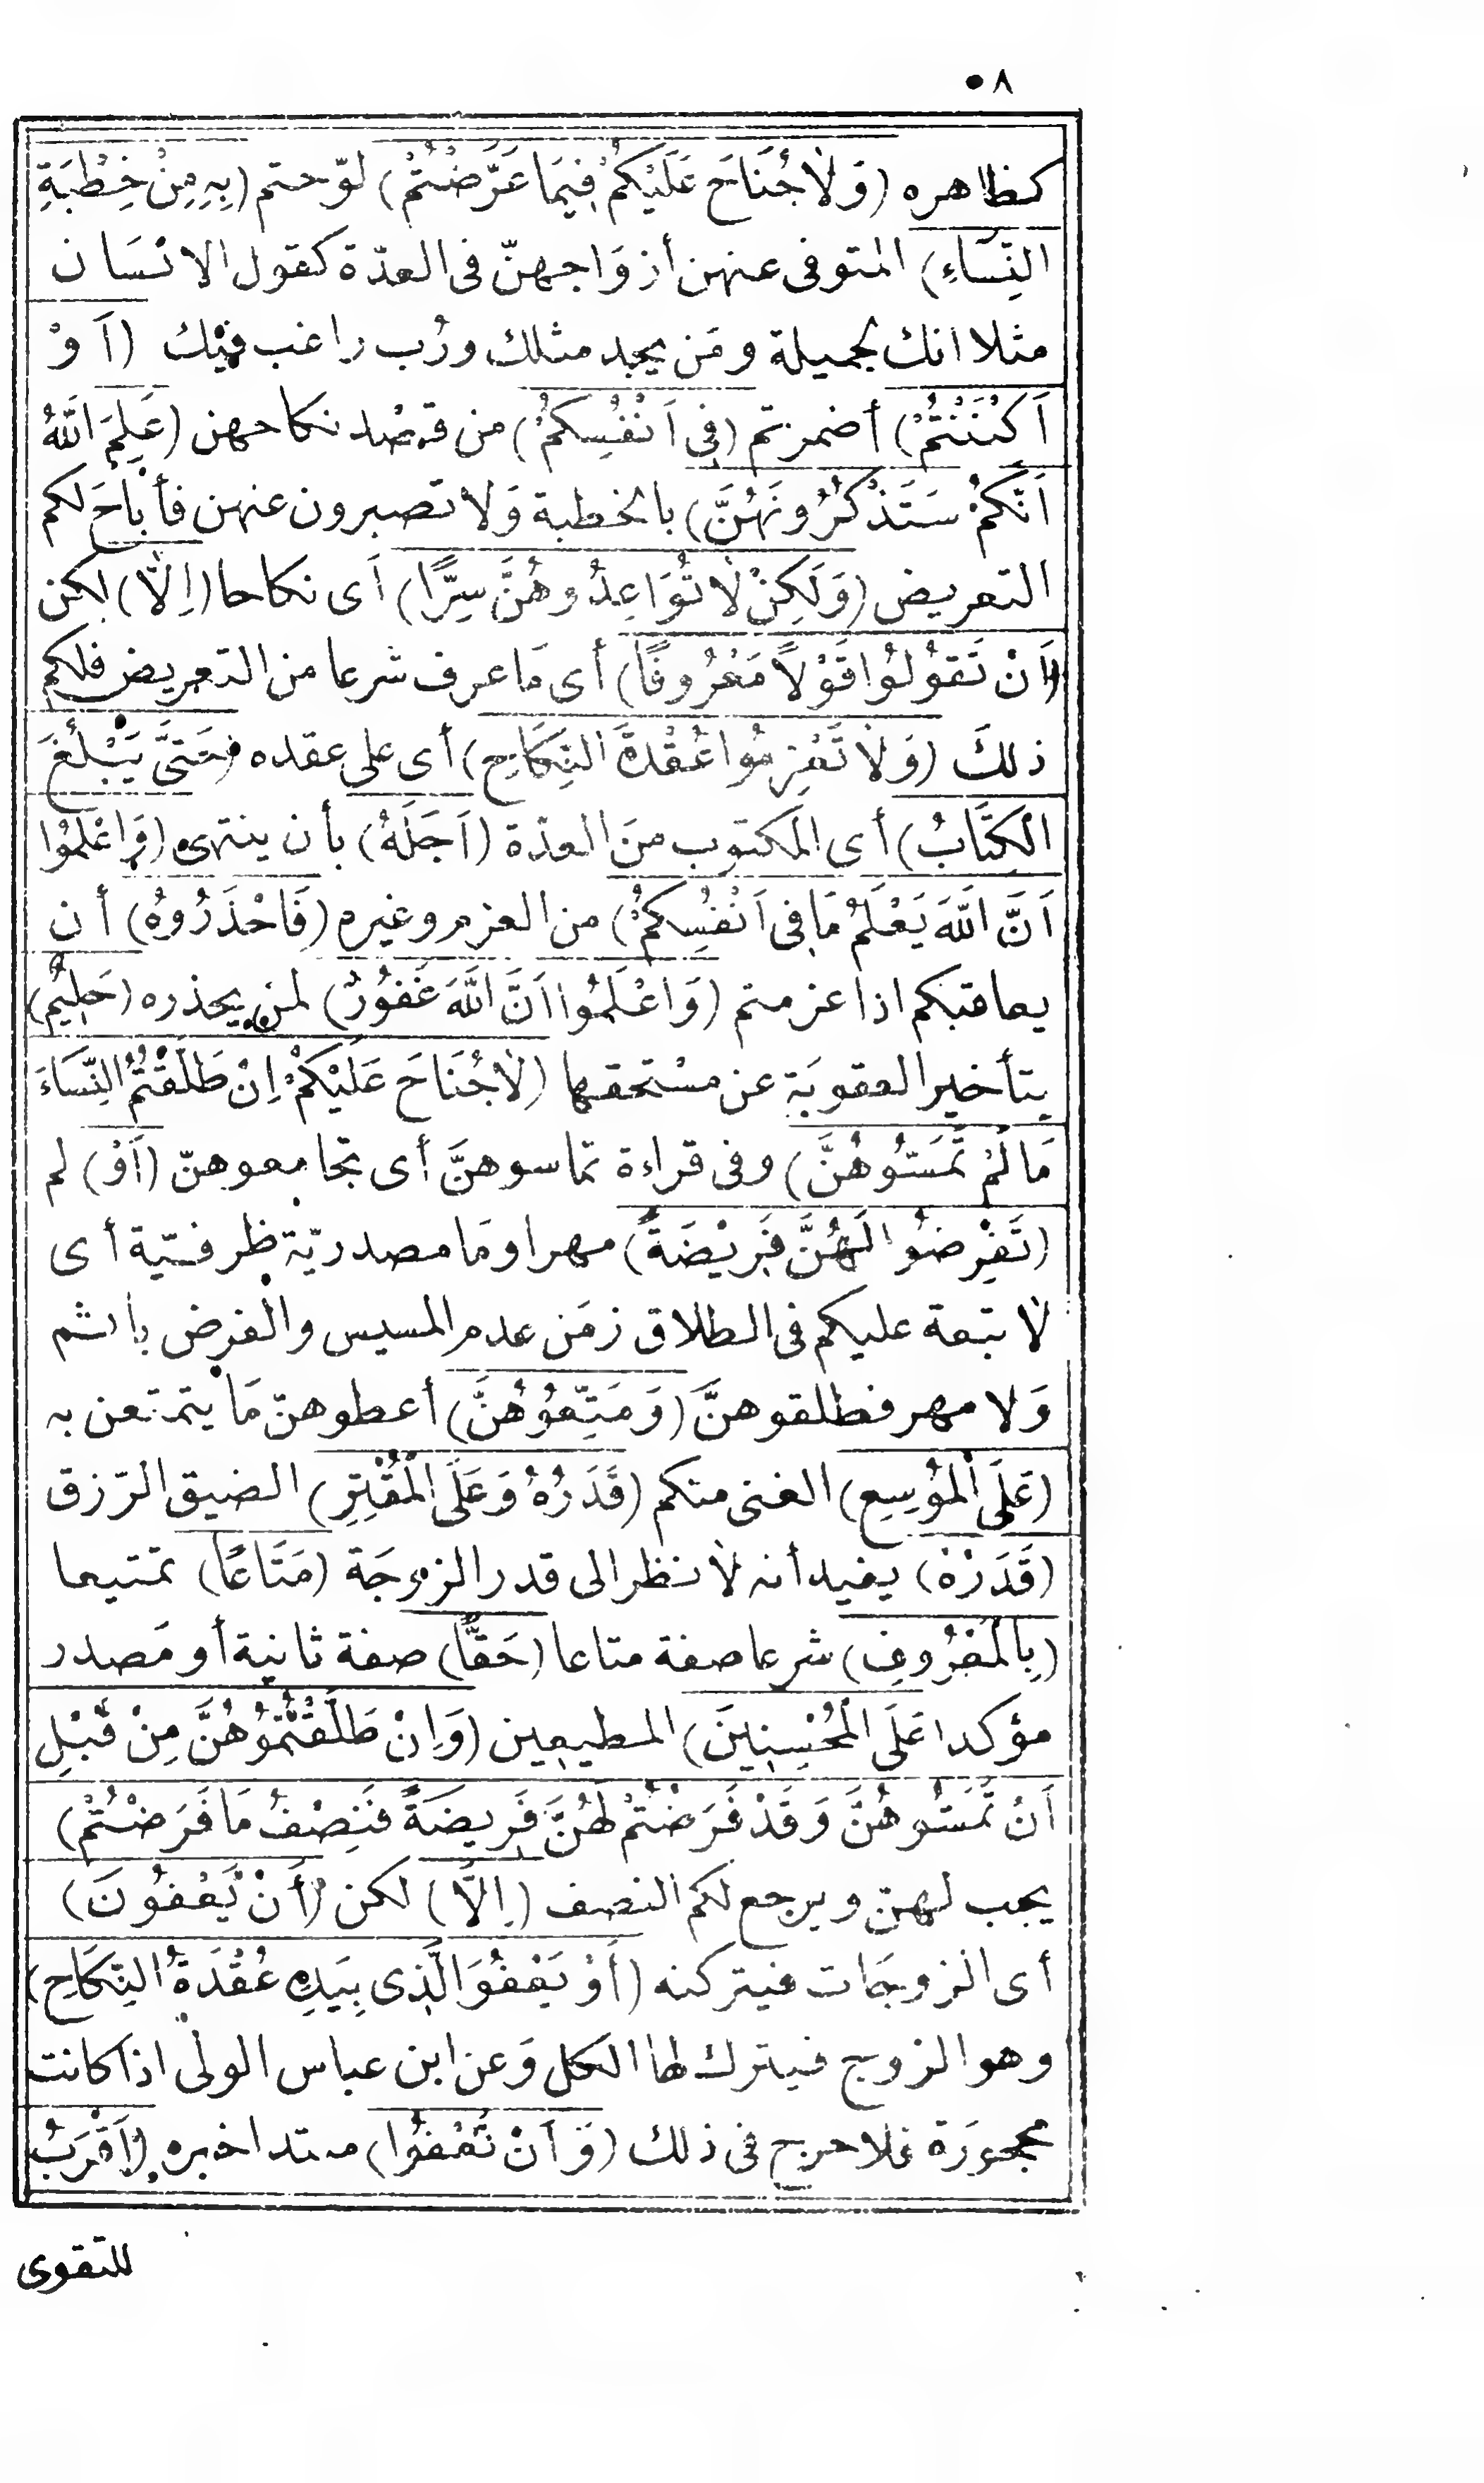 ٥٨
كظاهره (وَلَا جُنَاحَ عَلَيْكُمْ فِيمَا عَرَّضْتُمْ) لوّحتم (بِهِ مِنْ خِطْبَةِ
النِّسَاءِ) المتوفى عنهن أزوَاجهنّ فى العدّة كقول الانسَان
مثلا انك لجميلة ومَن يجد مثلك ورُب راغب فيْك (اَوْ
اَكْنَنْتُمْ) أضمرتم (فِى اَنْفُسِكُمْ) من قصْد نكاحهن (عَلِمَ اَللَّهُ
اَنَّكُمْ سَتَذْكُرُونَهُنَّ) بالخطبة وَلا تصبرون عنهن فأبَاحَ لكم
التعريض (وَلَكِنْ لَا تُوَاعِدُوهُنَّ سِرًّا) أى نكاحا (اِلَّا) لكن
(اَنْ تَقُولُوا قَوْلاً مَعْرُوفًا) أى مَا عرف شرعا من التعريض فلكم
ذلكَ (وَلَا تَعْزِمُوا عُقْدَةَ النِّكَاحِ) أى على عقده (حَتَّى يَبْلُغَ
الْكِتَابُ) أى المكتوب منَ العدّة (اَجَلَهُ) بأن ينتهى (وَاعْلَمُوا
اَنَّ اَللَّهَ يَعْلَمُ مَا فِى اَنْفُسِكُمْ) من العزم وغيره (فَاحْذَرُوهُ) أن
يعاقبكم اذا عزمتم (وَاعْلَمُوا اَنَّ اَللَّهَ غَفُورٌ) لمن يحذره (حَلِيمٌ)
بتأخير العقوبَة عن مسْتحقها (لَا جُنَاحَ عَلَيْكُمْ اِنْ طَلَّقْتُمُ النِّسَاءَ
مَا لَمْ تَمَسُّوهُنَّ) وفى قراءة تماسوهنَّ أى تجامعوهنّ (اَوْ) لم
(تَفْرِضُوا لَهُنَّ فَرِيْضَةً) مهرا ومَا مصدريّة ظرفيّة أى
لا تبعة عليكم فى الطلاق زمَن عدم المسيس والفرض باثم
وَلا مهر فطلقوهنَّ (وَمَتِّعُوهُنَّ) أعطوهنّ مَا يتمتعن به
(عَلَى الْمُوسِعِ) الغنى منكم (قَدَرُهُ وَعَلَى الْمُقْتِرِ) الضيق الرّزق
(قَدَرُهُ) يفيد أنه لا نظر الى قدر الزوجَة (مَتَاعًا) تمتيعا
(بِالْمَعْرُوفِ) شرعا صفة متاعا (حَقًّا) صفة ثانية أو مَصدر
مؤكد (عَلَى الْمُحْسِنِينَ) المطيعين (وَاِنْ طَلَّقْتُمُوهُنَّ مِنْ قَبْلِ
اَنْ تَمَسُّوهُنَّ وَقَدْ فَرَضْتُمْ لَهُنَّ فَرِيضَةً فَنِصْفُ مَا فَرَضْتُمْ)
يجب لهنّ ويرجع لكم النصف (اِلَّا) لكن (أَنْ يَعْفُونَ)
أى الزوجَات فيتركنه (أَوْ يَعْفُوَ الَّذِى بِيَدِهِ عُقْدَةُ النِّكَاحِ)
وهو الزوج فيترك لها الكل وَعن ابن عباس الولى اذا كانت
محجورَة فلا حرج فى ذلك (وَأَنْ تَعْفُوا) مبتدا خبره (اَقْرَبُ
للتقوى